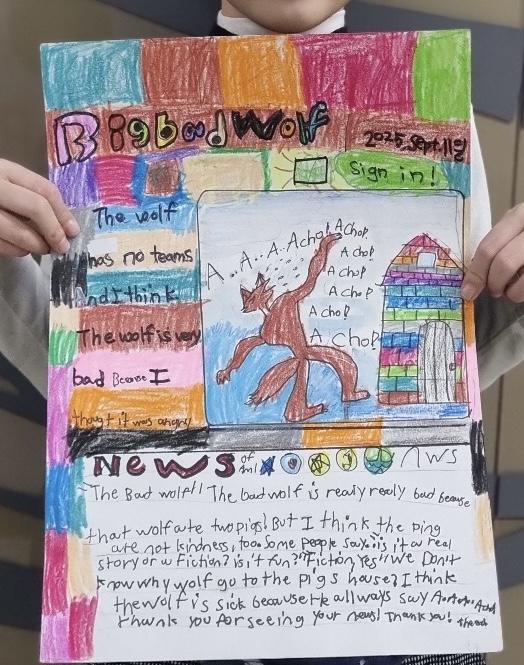 Bigbad Wolf
2025, Sept. 11일
Sign in!
The wolf
has no teams
And I think
The wolf is very
bad Because I
thougt it was angry
A..A..A.Acho! Achop
Achop
Achop
Achop
Achop
Achop
News of
NWS
"The Bad wolf!! The badwolf is realy really bad because
that wolf ate two pigs! But I think the ping
are not kindness, too. Some people say: is it a real
story or a fiction? is it fun? "Fiction Yes!! We Don't
know why wolf go to the pigs house? I think
the wolf is sick because He allways say A..A..A.. Achoo
Thank you for seeing your news! Thank you!